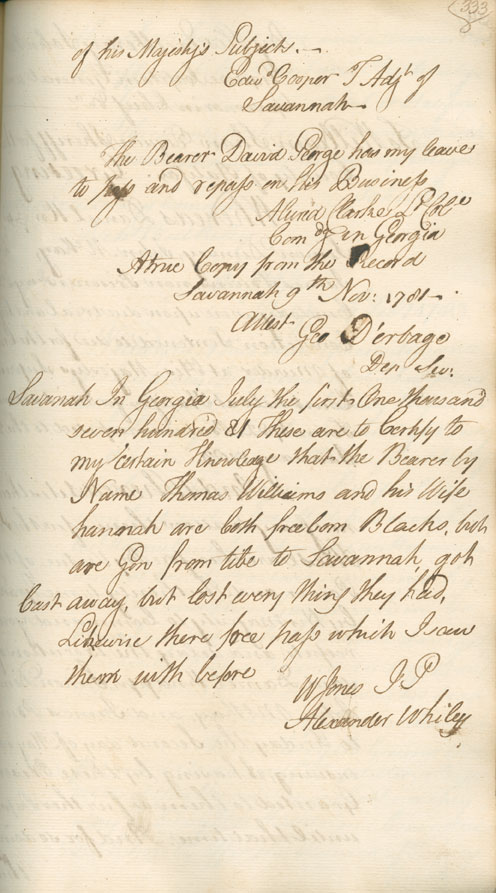 333
of his Majestys Subjects. —
Edwd Cooper T Adjt of
Savannah —
The Bearer David George has my leave
to pass and repass on his Business
Alured Clarke Lt Cole
Com dg in Georgia
A true Copy from the Record
Savannah 9th Nov: 1781.
Attest Geo D'erbage
Depy Sec:
Savannah In Georgia July the first One thousand
seven hundred 81 These are to Certify to
my Certain Knowledge that the Bearer by
Name Thomas Williams and his Wife
hannah are both freeborn Blacks, but
are Gon from tibe to Savannah, got
Cast away, but lost every thing they had,
Likewise there free pass which I saw
them with before
W Jones J P
Alexander Whiley